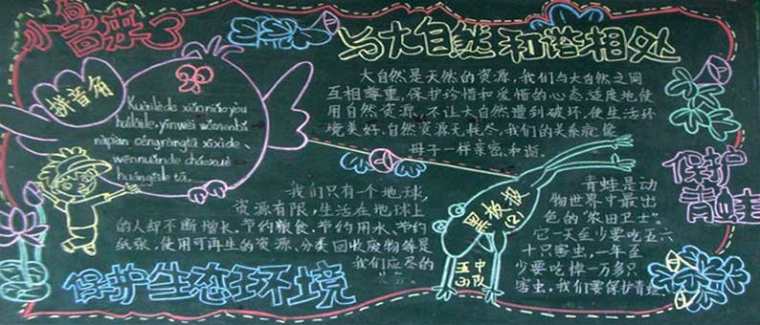 小鸟来了
与大自然和谐相处
拼音角
Kuàilède xiǎoniǎo yòu
huílaile, yīnwèi wǒmen bǎ
nàpiàn céngràngtā xǐxìde、
wēnnuǎnde cháoxué
huángěile tā。
大自然是天然的资源,我们与大自然之间
互相尊重,保护珍惜和爱惜的心态,适度地使
用自然资源,不让大自然遭到破坏,使生活环
境美好,自然资源无耗尽,我们的关系就像
母子一样亲密、和谐。
我们只有一个地球,
资源有限,生活在地球上
的人却不断增长。节约粮食、节约用水、节约
纸张、使用可再生的资源、分类回收废物等是
我们应尽的
保护生态环境
黑板报
(2)
五中
队
保护
青蛙
青蛙是动
物世界中最出
色的“农田卫士”。
它一天至少要吃五六
十只害虫,一年至
少要吃掉一万多只
害虫,我们要保护青蛙